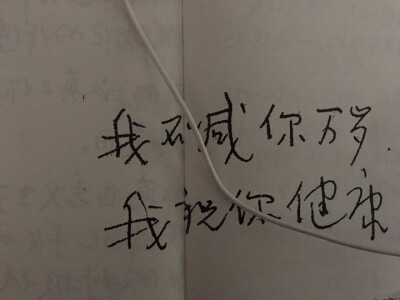 我不喊你万岁.
我祝你健康